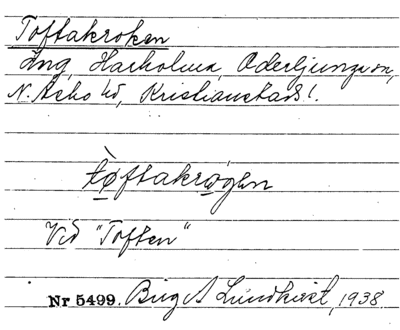 Toftakroken
Äng, Harholma, Oderljunga sn,
N. Åsbo hd, Kristianstads l.
tòftakrogen
Vid "Toften"
Nr 5499. Birg A Lundkvist, 1938